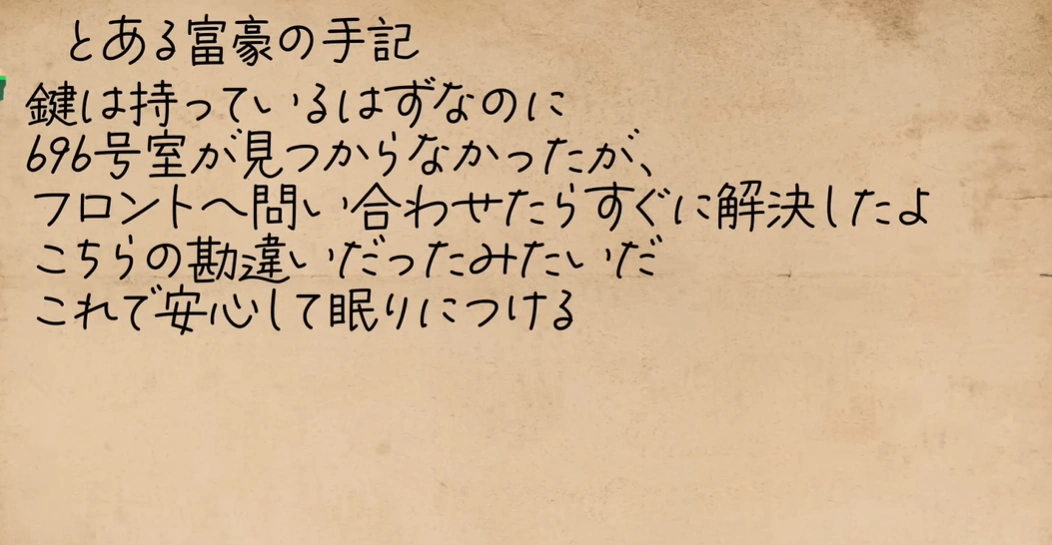 とある富豪の手記
鍵は持っているはずなのに
696号室が見つからなかったが、
フロントへ問い合わせたらすぐに解決したよ
こちらの勘違いだったみたいだ
これで安心して眠りにつける